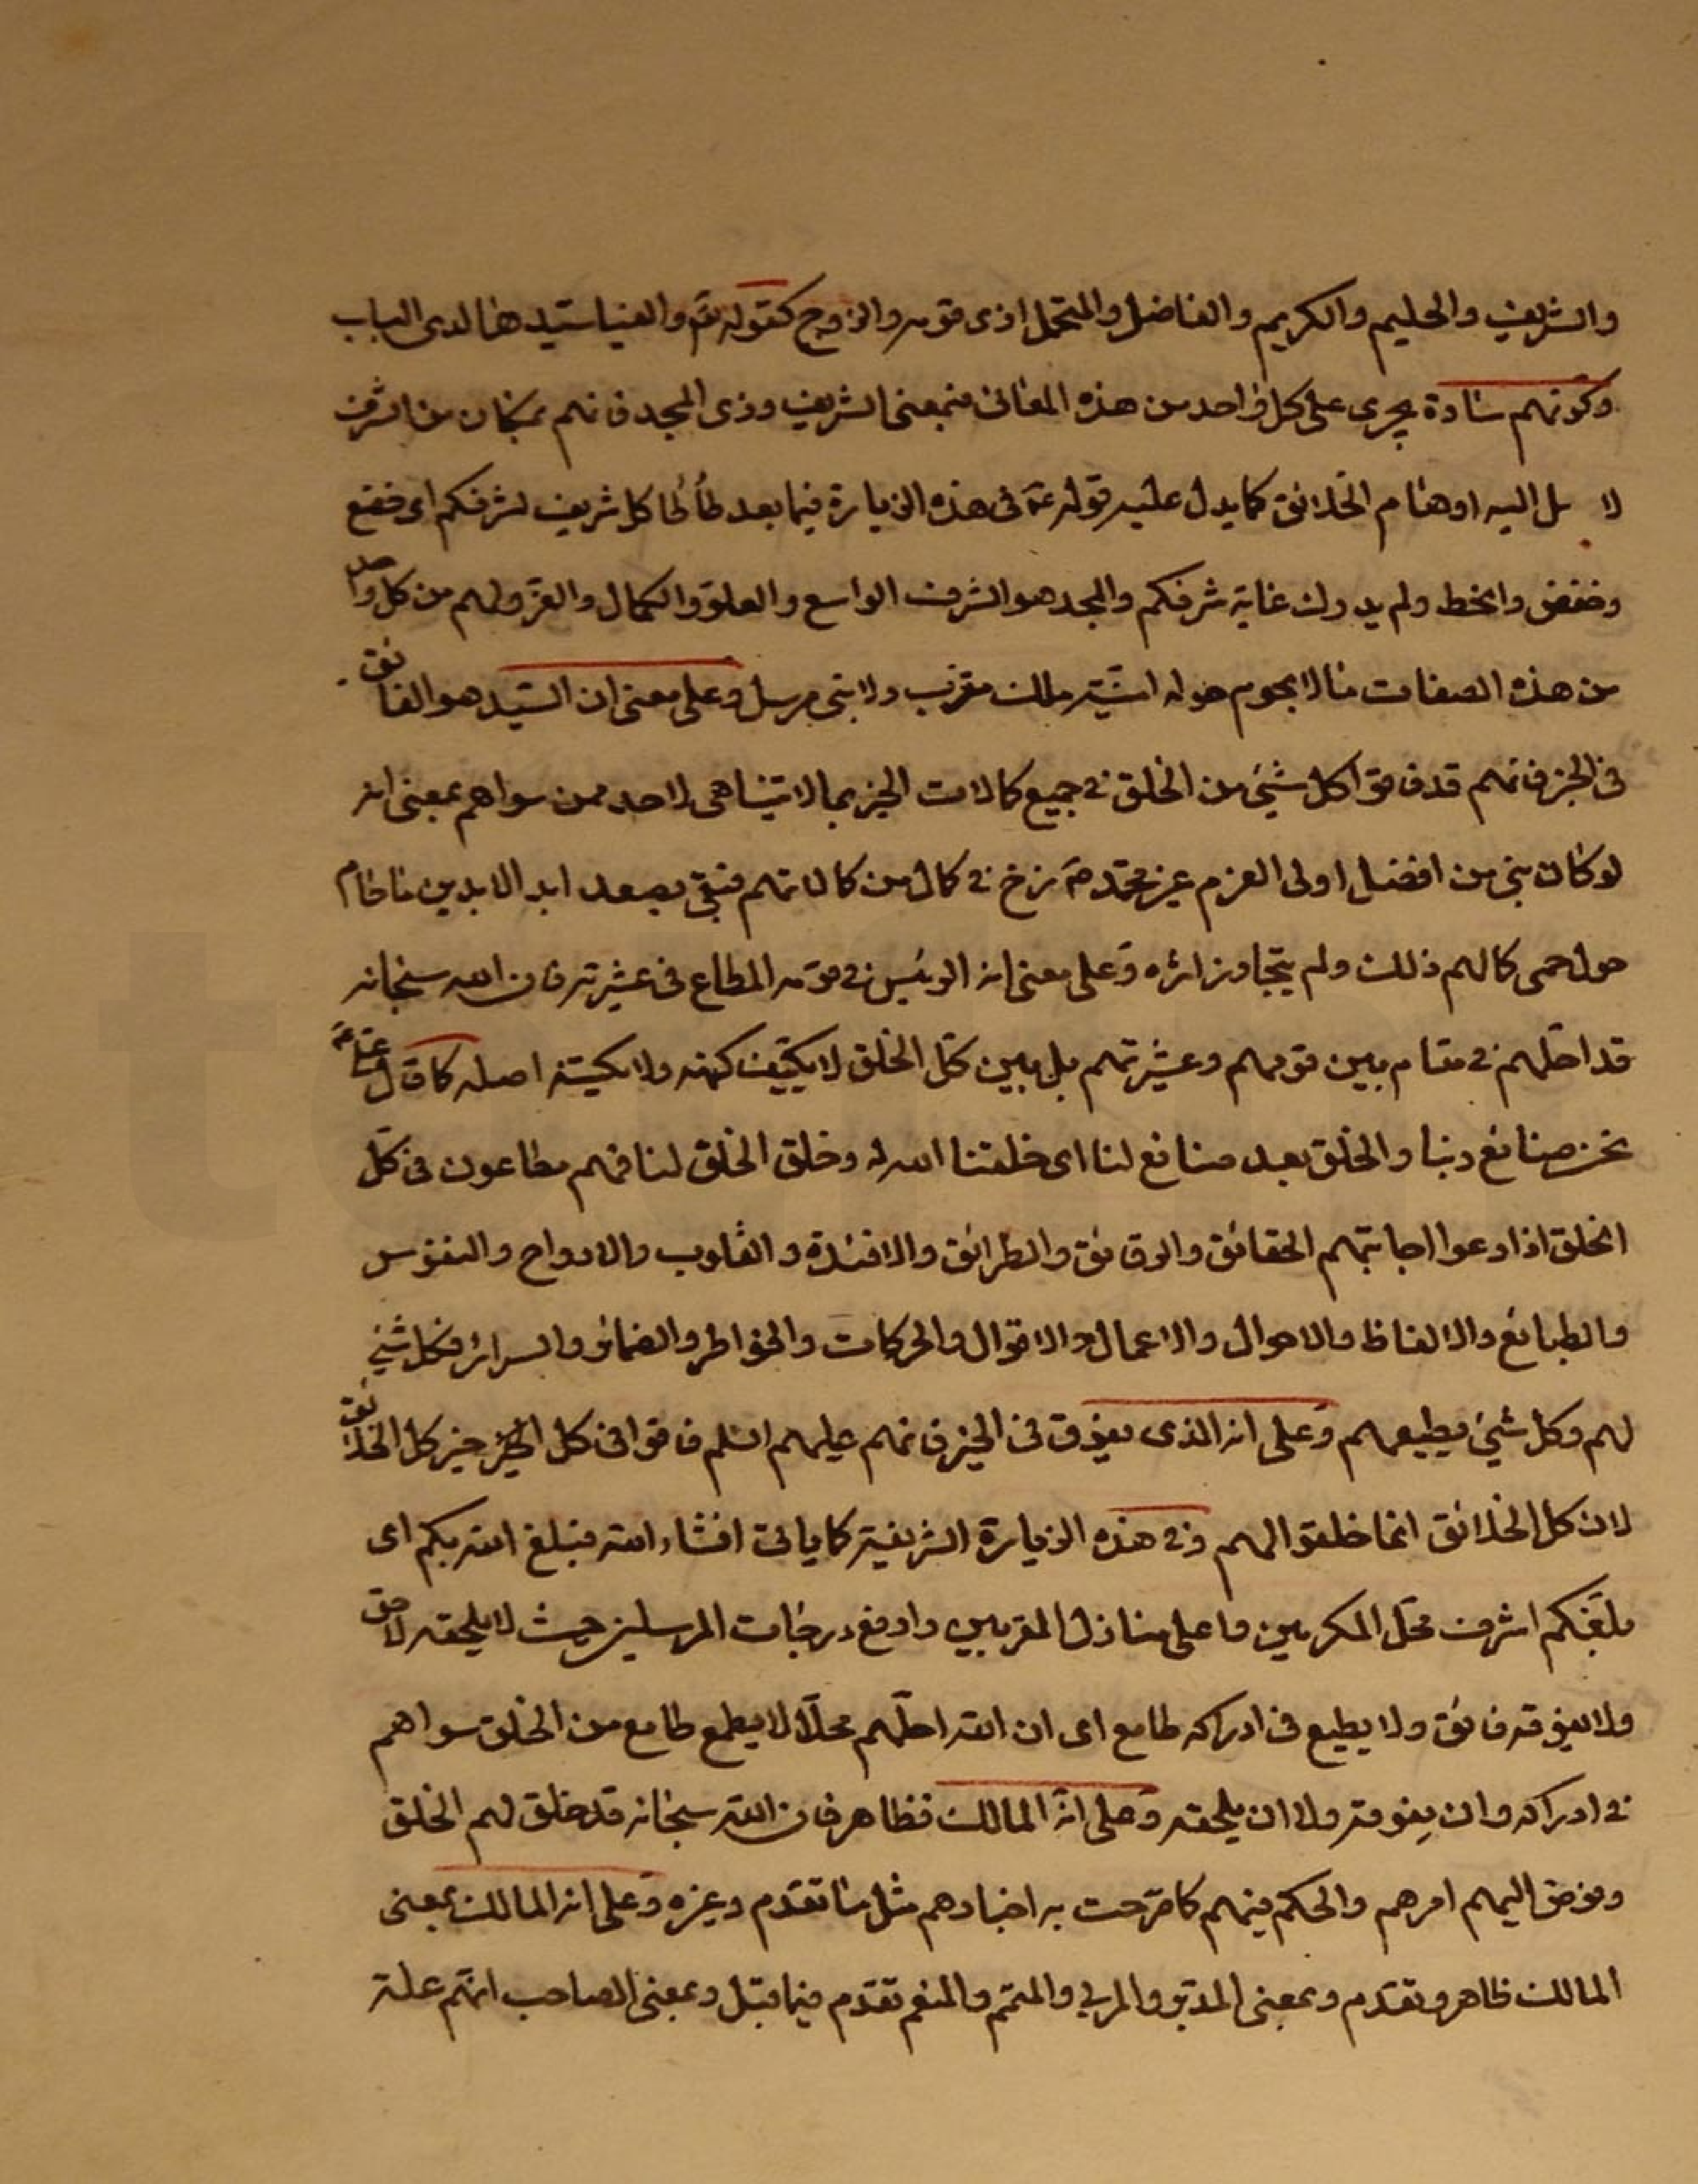 والشريف والحليم والكريم والفاضل والمتحمل اذى قومه والزوج كقوله تع والفيا سيدها لدى الباب
وكونهم سادة يجرى على كل واحد من هذه المعانى فبمعنى الشريف وذى المجد فانهم بمكان من الشرف
لا بل اليه اوهام الخلائق كما يدل عليه قوله عم فى هذه الزيارة فيما بعد طأطا كل شريف لشرفكم اى خضع
وخفض وانحط ولم يدرك غاية شرفكم والمجد هو الشرف الواسع والعلو والكمال والعز ولهم من كل واحد
من هذه الصفات ما لا يحوم حوله امنية ملك مقرب ولا نبى مرسل وعلى معنى ان السيد هو الفائق
فى الخير فانهم قد فاقوا كل شئ من الخلق فى جميع كمالات الخير بما لا يتناهى لاحد ممن سواهم بمعنى انه
لو كان نبى من افضل اولى العزم غير محمد ص نزخ فى كمال من كمالاتهم فبقى يصعد ابد الابدين ما حام
حول حمى كمالهم ذلك ولم يتجاوز اثره وعلى معنى انه الرئيس فى قومه المطاع فى عشيرته فان الله سبحانه
قد احلهم فى مقام بين قومهم وعشيرتهم بل بين كل الخلق لا يكيف كنهه ولا يكتنه اصله كما قال على ع
نحن صنائع ربنا والخلق بعد صنائع لنا اى خلقنا الله له وخلق الخلق لنا فهم مطاعون فى كل
الخلق اذا دعوا اجابتهم الحقائق والرقائق والطرائق والافئدة والقلوب والارواح والنفوس
والطبائع والالفاظ والاحوال والاعمال والاقوال والحركات والخواطر والضمائر والسرائر فكل شئ
لهم وكل شئ يطيعهم وعلى انه الذى يفوق فى الخير فانهم عليهم السلم فاقوا فى كل الخير خير كل الخلائق
لان كل الخلائق انما خلقوا لهم وفى هذه الزيارة الشريفة كما ياتى انشاء الله فبلغ الله بكم اى
بلغكم اشرف محل المكرمين واعلى منازل المقربين وارفع درجات المرسلين حيث لا يلحقه لاحق
ولا يفوقه فائق ولا يطمع فى ادراكه طامع اى ان الله احلهم محلا لا يطمع طامع من الخلق سواهم
فى ادراكه وان يفوقه ولا ان يلحقه وعلى انه المالك فظاهر فان الله سبحانه قد خلق لهم الخلق
وفوض اليهم امرهم والحكم فيهم كما صرحت به اخبارهم مثل ما تقدم وغيره وعلى انه المالك بمعنى
المالك ظاهر وتقدم وبمعنى المدبر والمربى والمتمم والمنعم تقدم فيما قبل وبمعنى الصاحب انهم علة